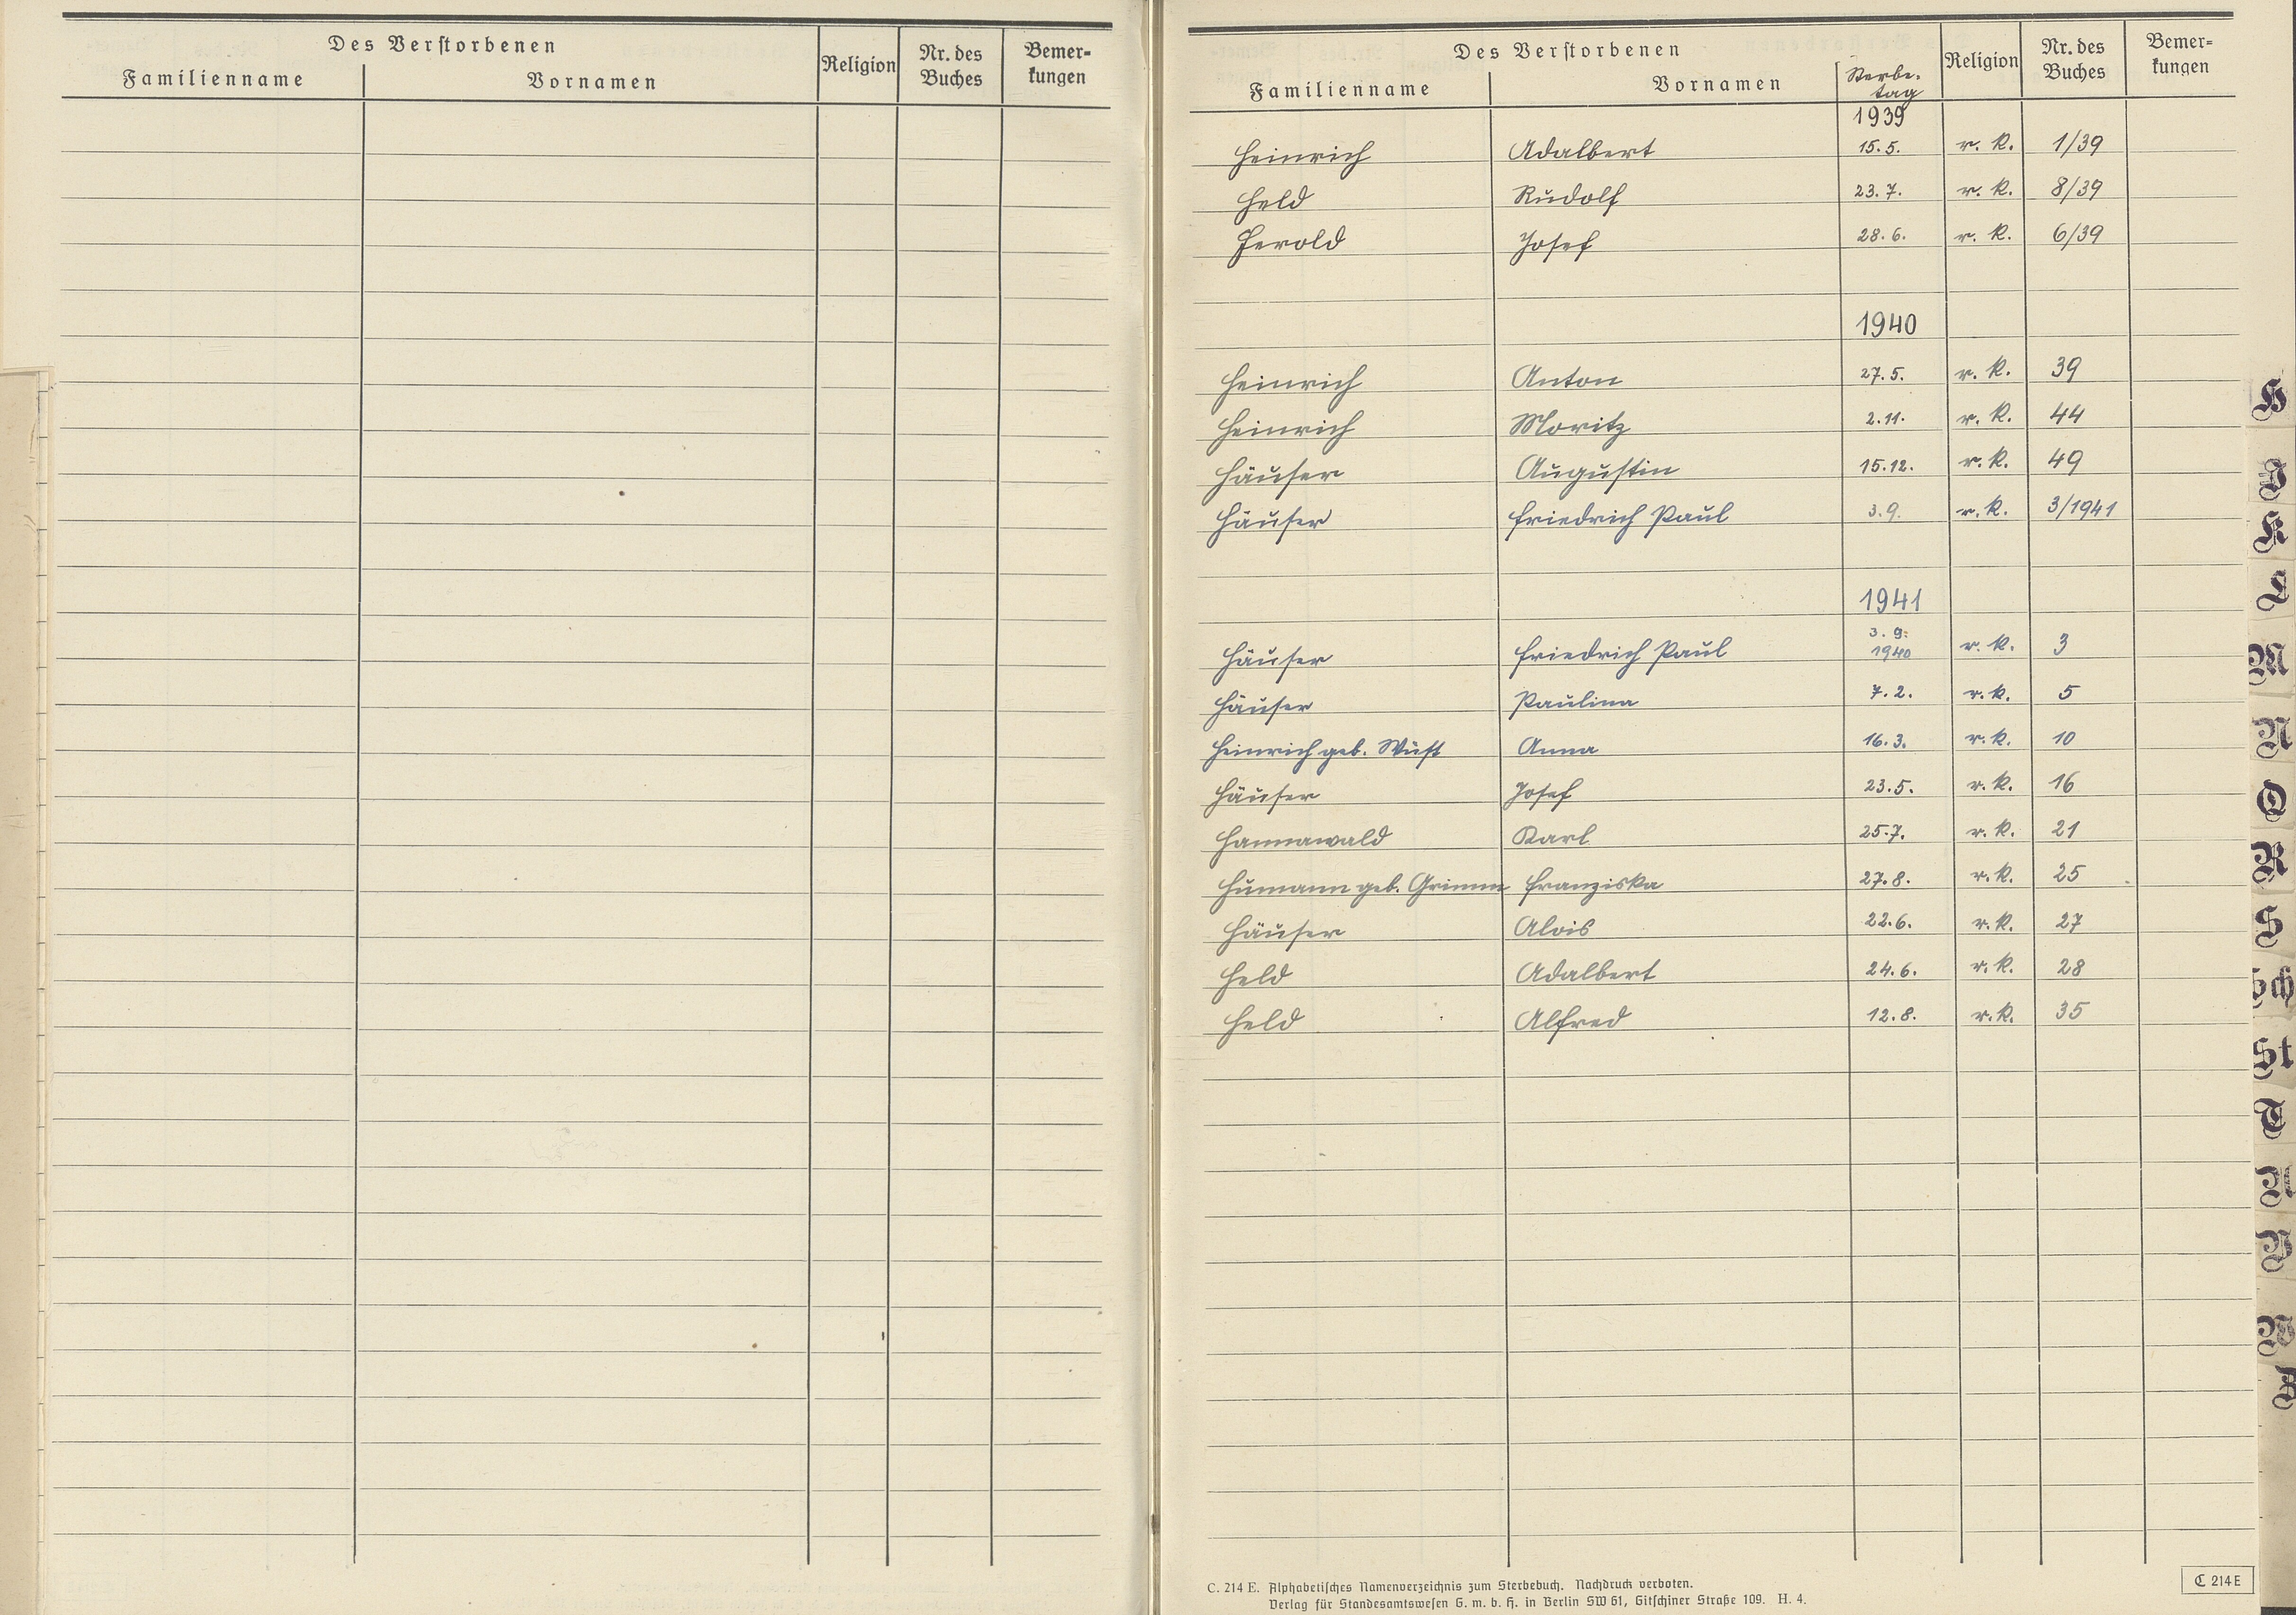 Des Verstorbenen
Familienname Vornamen Religion Nr. des Buches Bemer-kungen
Des Verstorbenen
Familienname Vornamen Sterbe-tag Religion Nr. des Buches Bemer-kungen
1939
Heinrich Adalbert 15.5. r. k. 1/39
Held Rudolf 23.7. r. k. 8/39
Herold Josef 28.6. r. k. 6/39
1940
Heinrich Anton 27.5. r. k. 39
Heinrich Moritz 2.11. r. k. 44
Häuser Augustin 15.12. r. k. 49
Häuser Friedrich Paul 3.9. r. k. 3/1941
1941
Häuser Friedrich Paul 3.9. 1940 r. k. 3
Häuser Paulina 7.2. r. k. 5
Heinrich geb. Wüst Anna 16.3. r. k. 10
Häuser Josef 23.5. r. k. 16
Hannawald Karl 25.7. r. k. 21
Humann geb. Grimm Franziska 27.8. r. k. 25
Häuser Alois 22.6. r. k. 27
Held Adalbert 24.6. r. k. 28
Held Alfred 12.8. r. k. 35
H
J
K
L
M
N
O
R
S
Sch
St
T
U
V
W
Z
C. 214 E. Alphabetisches Namenverzeichnis zum Sterbebuch. Nachdruck verboten.
Verlag für Standesamtswesen G. m. b. H. in Berlin SW 61, Gitschiner Straße 109. H. 4.
C 214 E